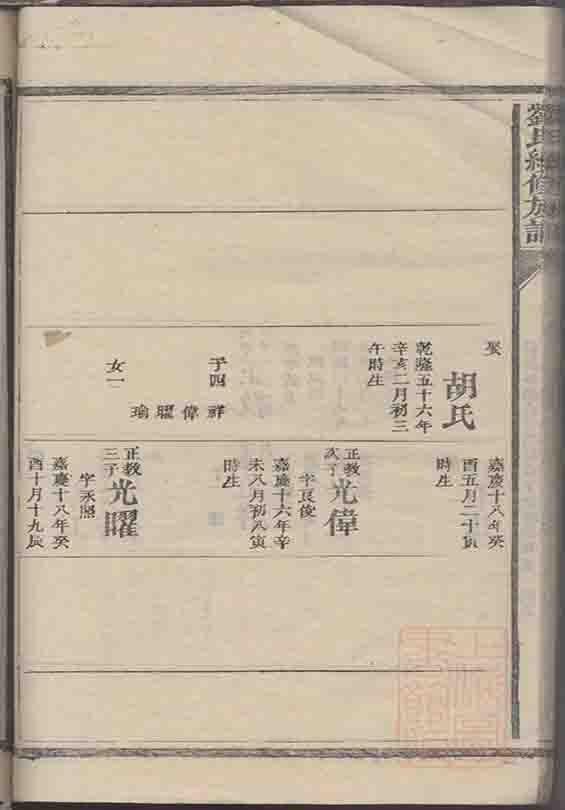 劉氏續修族譜
娶
胡氏
乾隆五十六年
辛亥二月初三
午時生
子四
祥 偉 曜 瑜
女一
嘉慶十八年癸
酉五月二十寅
時生
正教
次子
光偉
字良俊
嘉慶十六年辛
未八月初八寅
時生
正教
三子
光曜
字永照
嘉慶十八年癸
酉十月十九辰